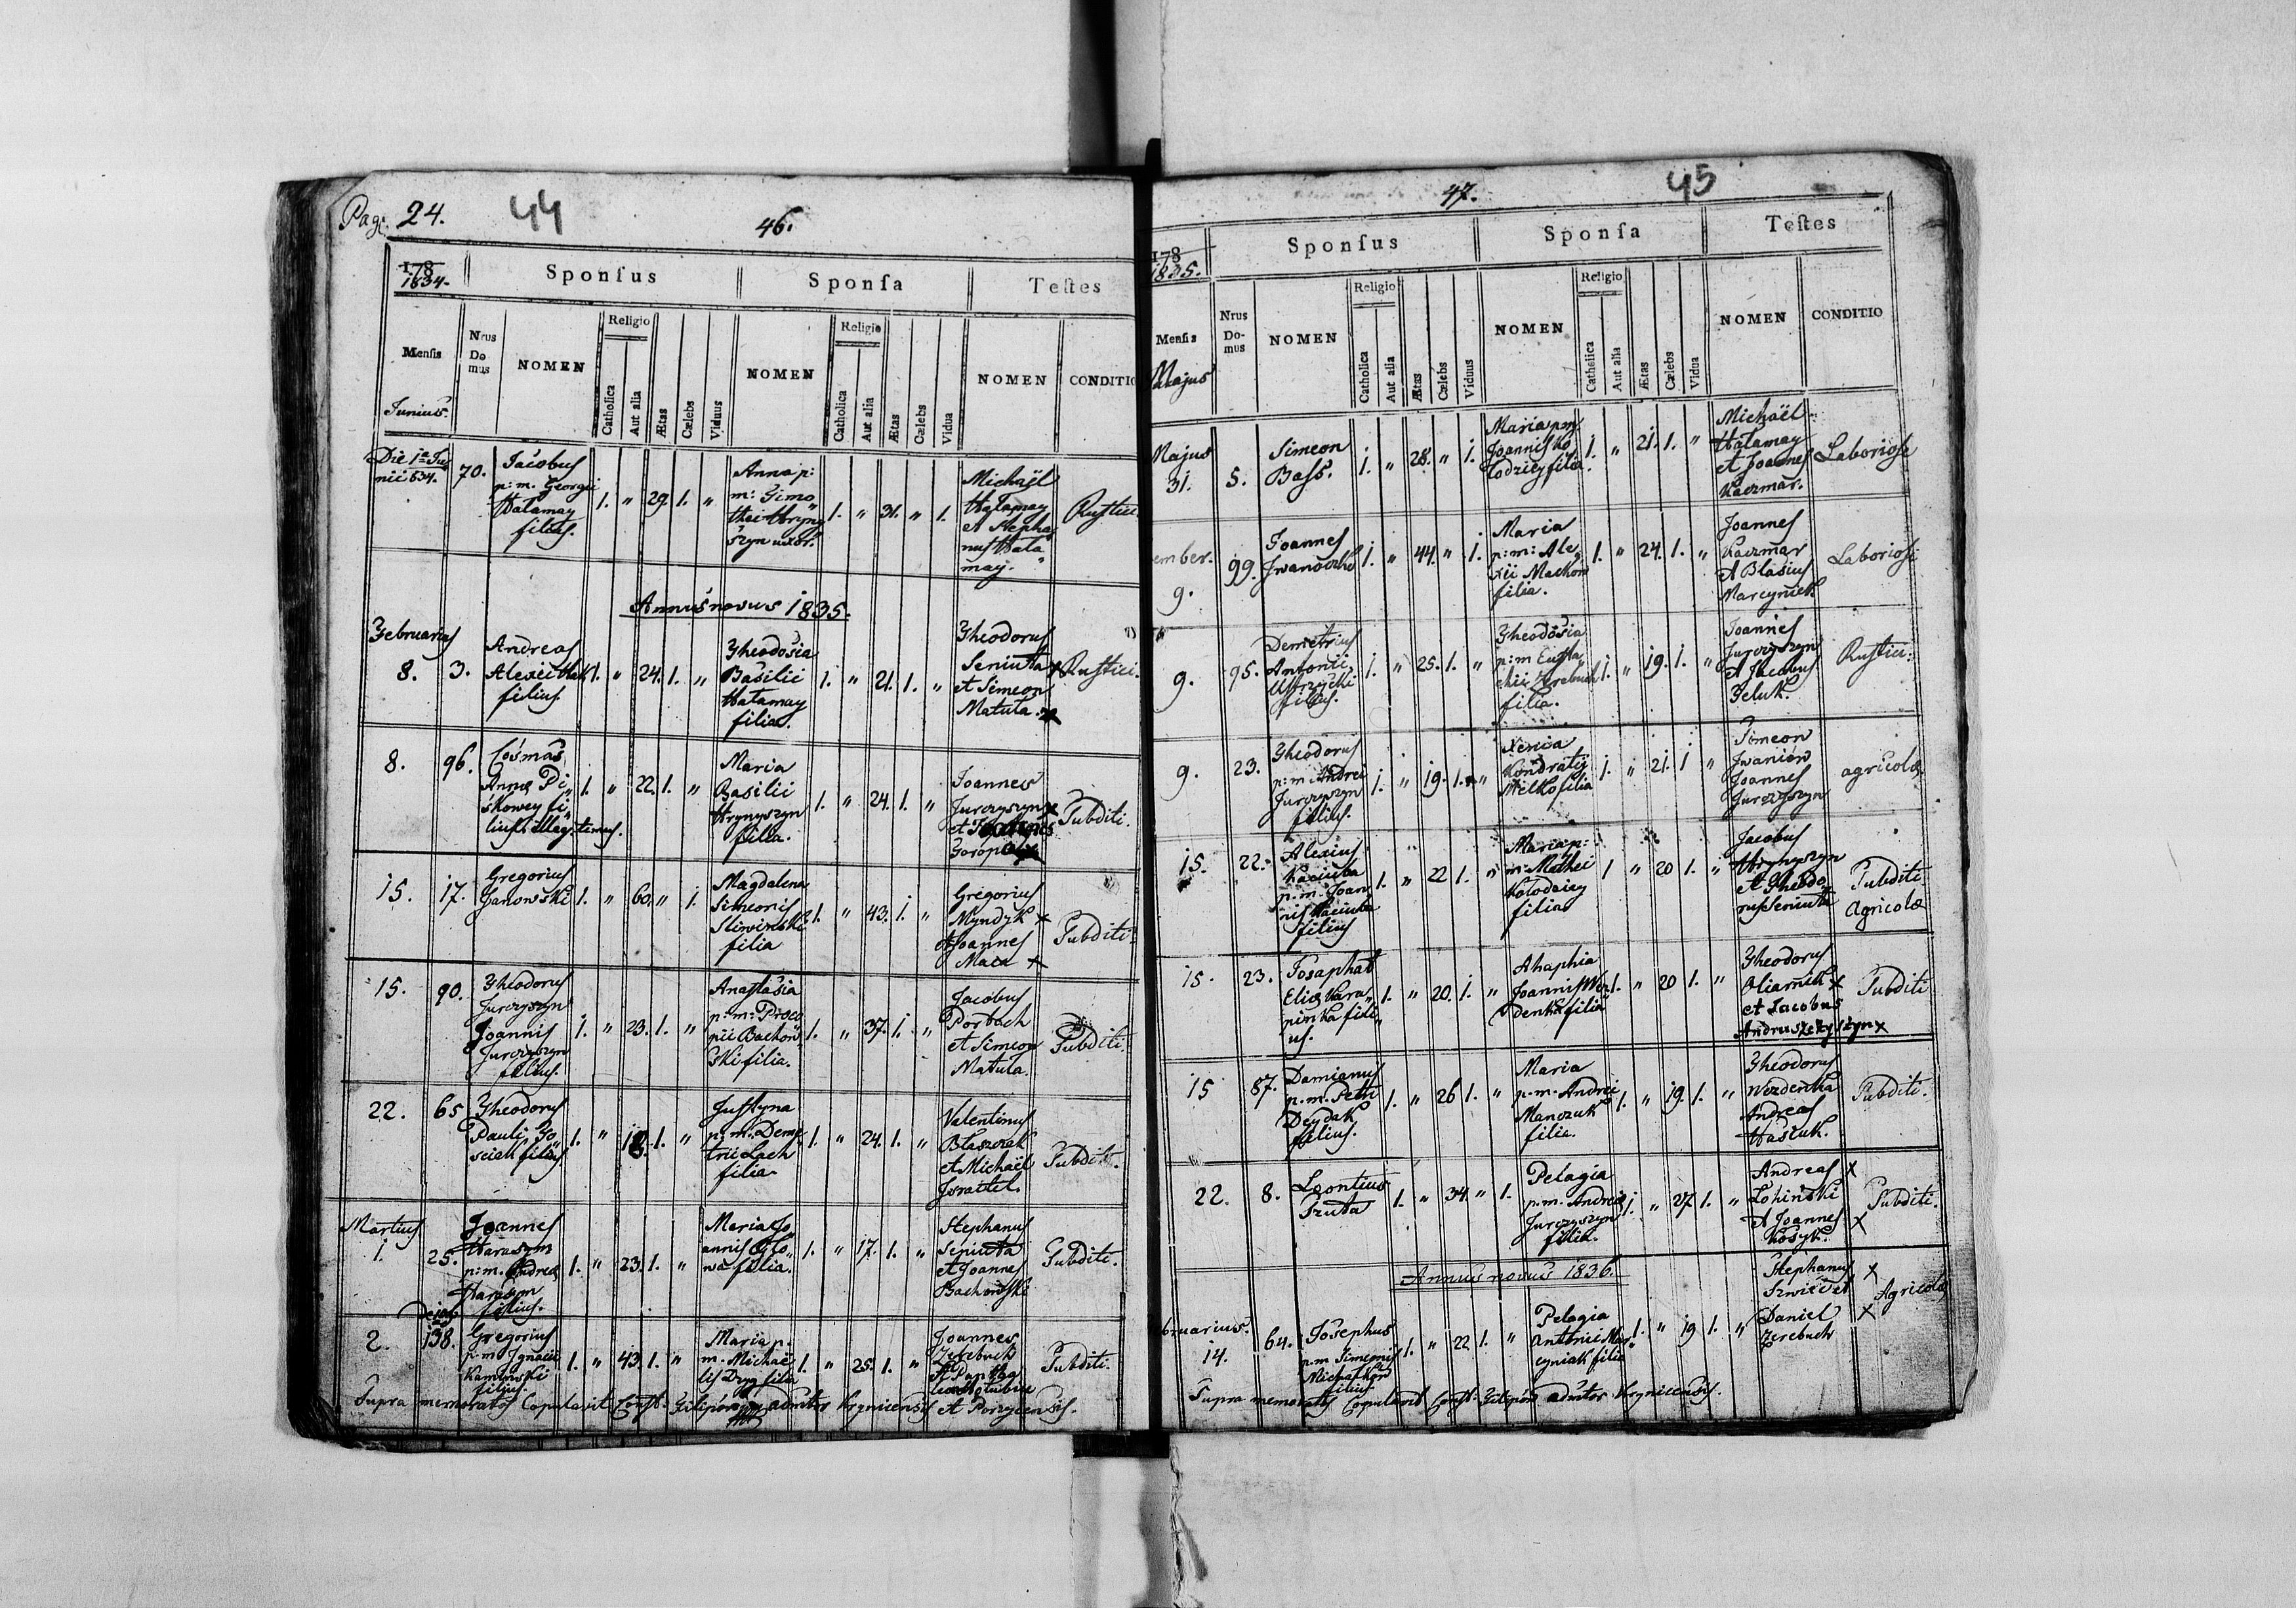 Pag. 24.
44
46.
178
1834.
Sponſus
Sponſa
Teſtes
Menſis
Nrus Do mus
NOMEN
Religio
Catholica
Aut alia
Ætas
Cælebs
Viduus
NOMEN
Religio
Catholica
Aut alia
Ætas
Cælebs
Vidua
NOMEN
CONDITIO
Junius.
Die 1a Ju
nii 834.
70.
Jacobus
p: m. Georgii
Hałamay
filius.
1. " 29. 1. "
Anna p:
m: Timo
thei Hryny
szyn uxor.
1. " 31. " 1.
Michaël
Hałamay
et Stepha
nus Hała
may.
Rustici
Annus novus 1835.
Februarius
8.
3.
Andreas
Alexii
filius.
1. " 24. 1. "
Theodosia
Basilii
Hałamay
filia.
1. " 21. 1. "
Theodorus
Seniuta x
et Simeon
Matuła. x
Rustici.
8.
96.
Cosmas
Annæ Pi
skowey fi
lius illegitimus.
1. " 22. 1. "
Maria
Basilii
Hrynyszyn
filia.
1. " 24. 1. "
Joannes
Jurczyszyn x
et
Subditi.
15.
17.
Gregorius
Janowski
1. " 60. " 1.
Magdalena
Simeonis
Sliwinski
filia
1. " 43. 1. "
Gregorius
Myndyk x
et Joannes
Maca x
Subditi.
15.
90.
Theodorus
Jurczyszyn
Joannis
Jurczyszyn
filius.
1. " 23. 1. "
Anastasia
p: m: Proco
pii Bachow
ski filia.
1. " 37. 1. "
Jacobus
Porboch
et Simeon
Matuła.
Subditi.
22.
65
Theodorus
Pauli
filius.
1. " 18. 1. "
Justyna
p: m. Deme
trii Lach
filia
1. " 24. 1. "
Valentinus
Błaszczak
et Michaël
Subditi.
Martius
1.
25.
Joannes
Harasym
p: m. Andreæ
Harasym
filius.
1. " 23. 1. "
Maria Jo
annis
filia.
1. " 17. 1. "
Stephanus
Seniuta
et Joannes
Bachowski
Subditi.
2.
138.
Gregorius
p: m. Ignatii
Kaminski
filius.
1. " 43. 1. "
Maria p:
m. Michaë
lis Dryg filia
1. " 25. 1. "
Joannes
Zerebuch
Subditi.
Supra memoratos Copulavit Const: Filipów admtor Krynicensis et Porzycensis.
47.
45
178
1835.
Sponſus
Sponſa
Teſtes
Menſis
Nrus Do- mus
NOMEN
Religio
Catholica
Aut alia
Ætas
Cælebs
Viduus
NOMEN
Religio
Catholica
Aut alia
Ætas
Cælebs
Vidua
NOMEN
CONDITIO
Majus
Majus
31.
5.
Simeon
Bass.
1. " 28. " 1.
Maria p m.
Joannis Ko
łodziey filia.
1. " 21. 1. "
Michaël
Hałamay
et Joannes
Kaczmar.
Laboriosi
ember.
9.
99.
Joannes
Iwanoczko
1. " 44. " 1.
Maria
p: m: Ale
xii Machow
filia.
1. " 24. 1. "
Joannes
Kaczmar
et Blasius
Marcyniek
Laboriosi
9.
95.
Demetrius
Antonii
Ustrzycki
filius.
1. " 25. 1. "
Theodosia
p: m Eusta
chii Zerebuch
filia.
1. " 19. 1. "
Joannes
Jurczyszyn
et Jacobus
Feluk.
Rustici:
9.
23.
Theodorus
p: m: Andrei
Jurczyszyn
filius.
1. " 19. 1. "
Xenia
Kondratij
Melko filia
1. " 21. 1 "
Simeon
Iwaniow
Joannes
Jurczyszyn
agricolæ
15.
22.
Alexius
Kaciuba
p. m. Joan
nis Kaciuba
filius
1. " 22 1. "
Maria p:
m: Mathei
Kołodziey
filia
1 " 20 1. "
Jacobus
Hrynyszyn
et Theodo
rus Seniuta
Subditi
Agricolæ
15.
23.
Josaphat
Eliæ Kara
pinka fili
us.
1. " 20. 1. "
Ahaphia
Joannis Wez
denka filia
1. " 20 1. "
Theodorus
Oliarnik x
et Jacobus
Andruszczyszyn x
Subditi
15
87.
Damianus
p. m. Petri
Deydak
filius.
1. " 26 1. "
Maria
p. m. Andrei
Manczuk
filia.
1. " 19. 1. "
Theodorus
Wezdenka
Andreas
Hasiuk.
Subditi.
22.
8.
Leontius
Szuta
1. " 34. " 1.
Pelagia
p. m. Andreæ
Jurczyszyn
filia.
1. " 27. 1. "
Andreas x
Łohinski
et Joannes
Kosyk. x
Subditi.
Annus novus 1836.
bruarius.
14.
64.
Josephus
p. m Simeonis
Michałkow
filius
1. " 22 1. "
Pelagia
Antonii Mar
cyniak filia
1. " 19 1. "
Stephanus x
Szwiedet
Daniel x
Zerebuch
Agricolæ
Supra memoratos Copulavit Const: Filipów admtor Krynicensis.